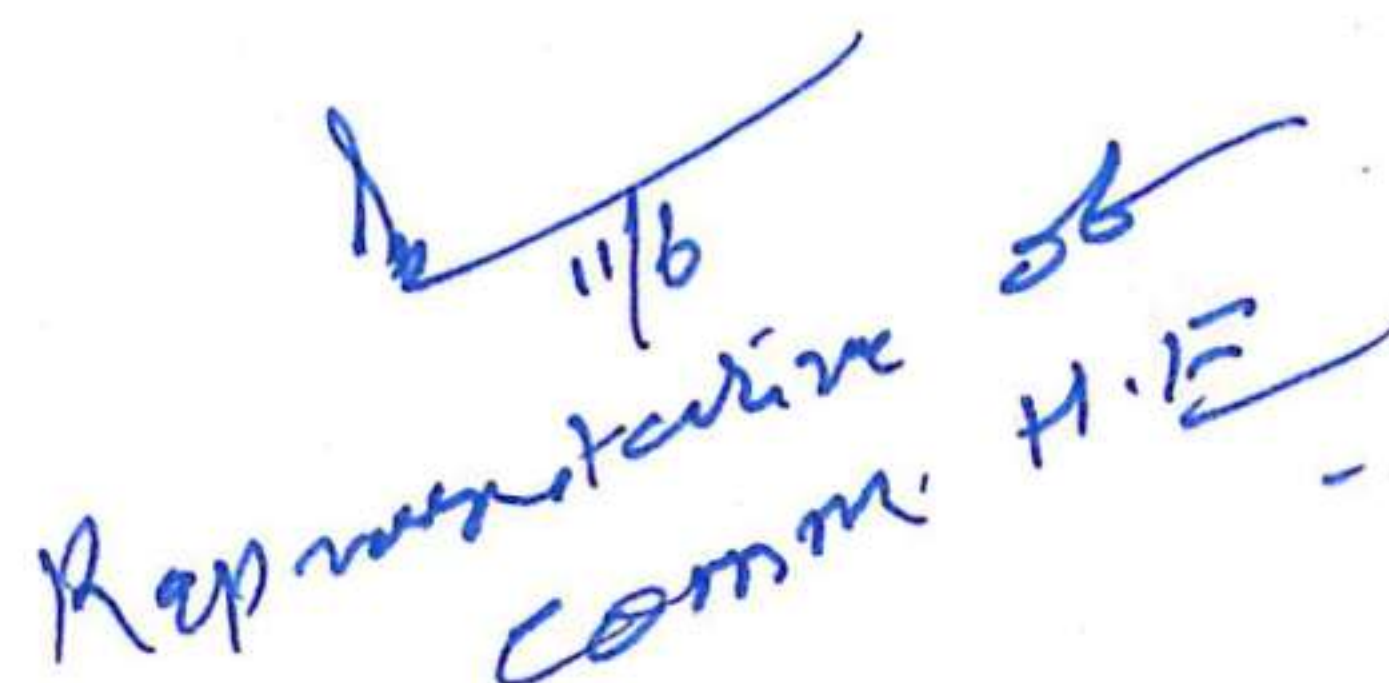 11/6
Representative of
Comm. H.E